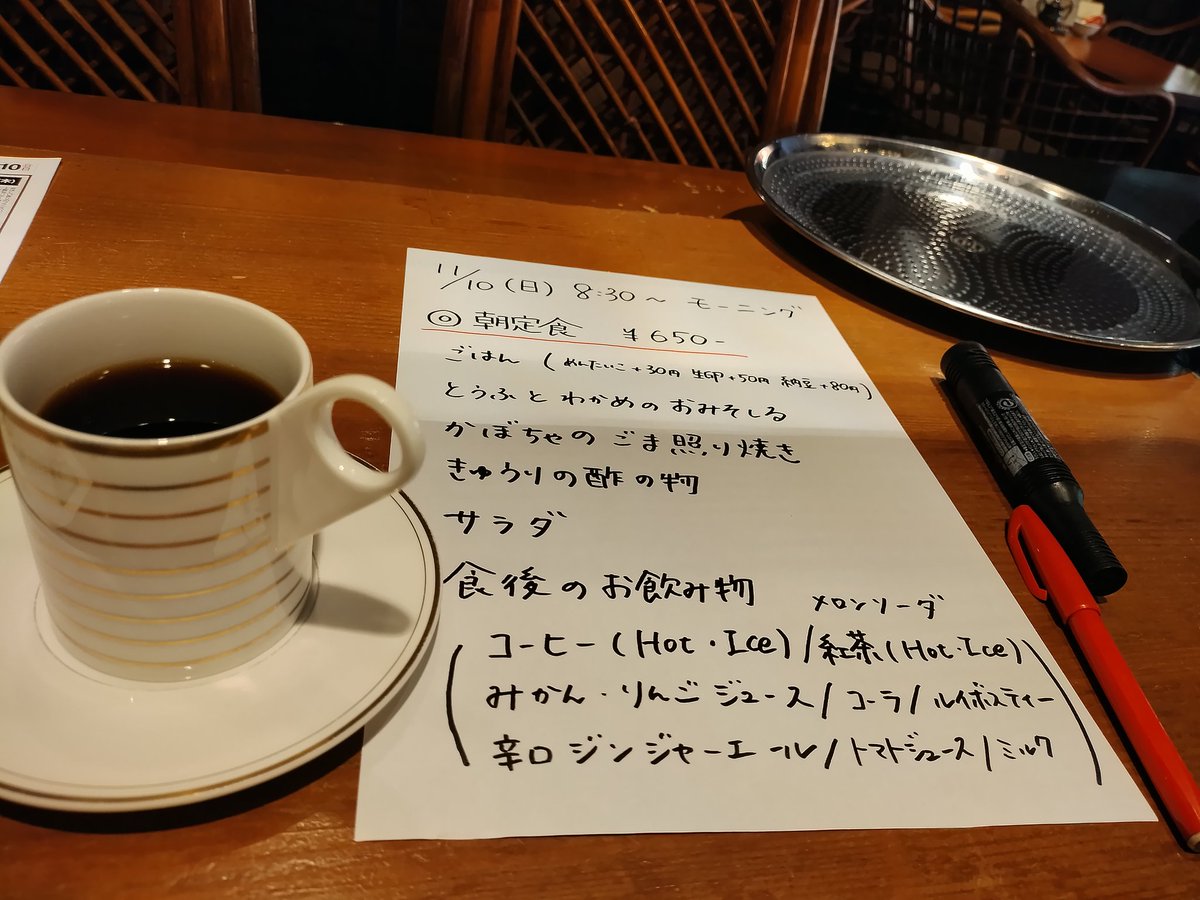 11/10(日) 8:30～ モーニング
◎ 朝定食 ¥650-
ごはん (めんたいこ+30円 生卵+50円 納豆+80円)
とうふとわかめのおみそしる
かぼちゃのごま照り焼き
きゅうりの酢の物
サラダ
食後のお飲み物
メロンソーダ
コーヒー(Hot・Ice)/紅茶(Hot・Ice)
みかん・りんごジュース/コーラ/ルイボスティー
辛口ジンジャーエール/トマトジュース/ミルク
10